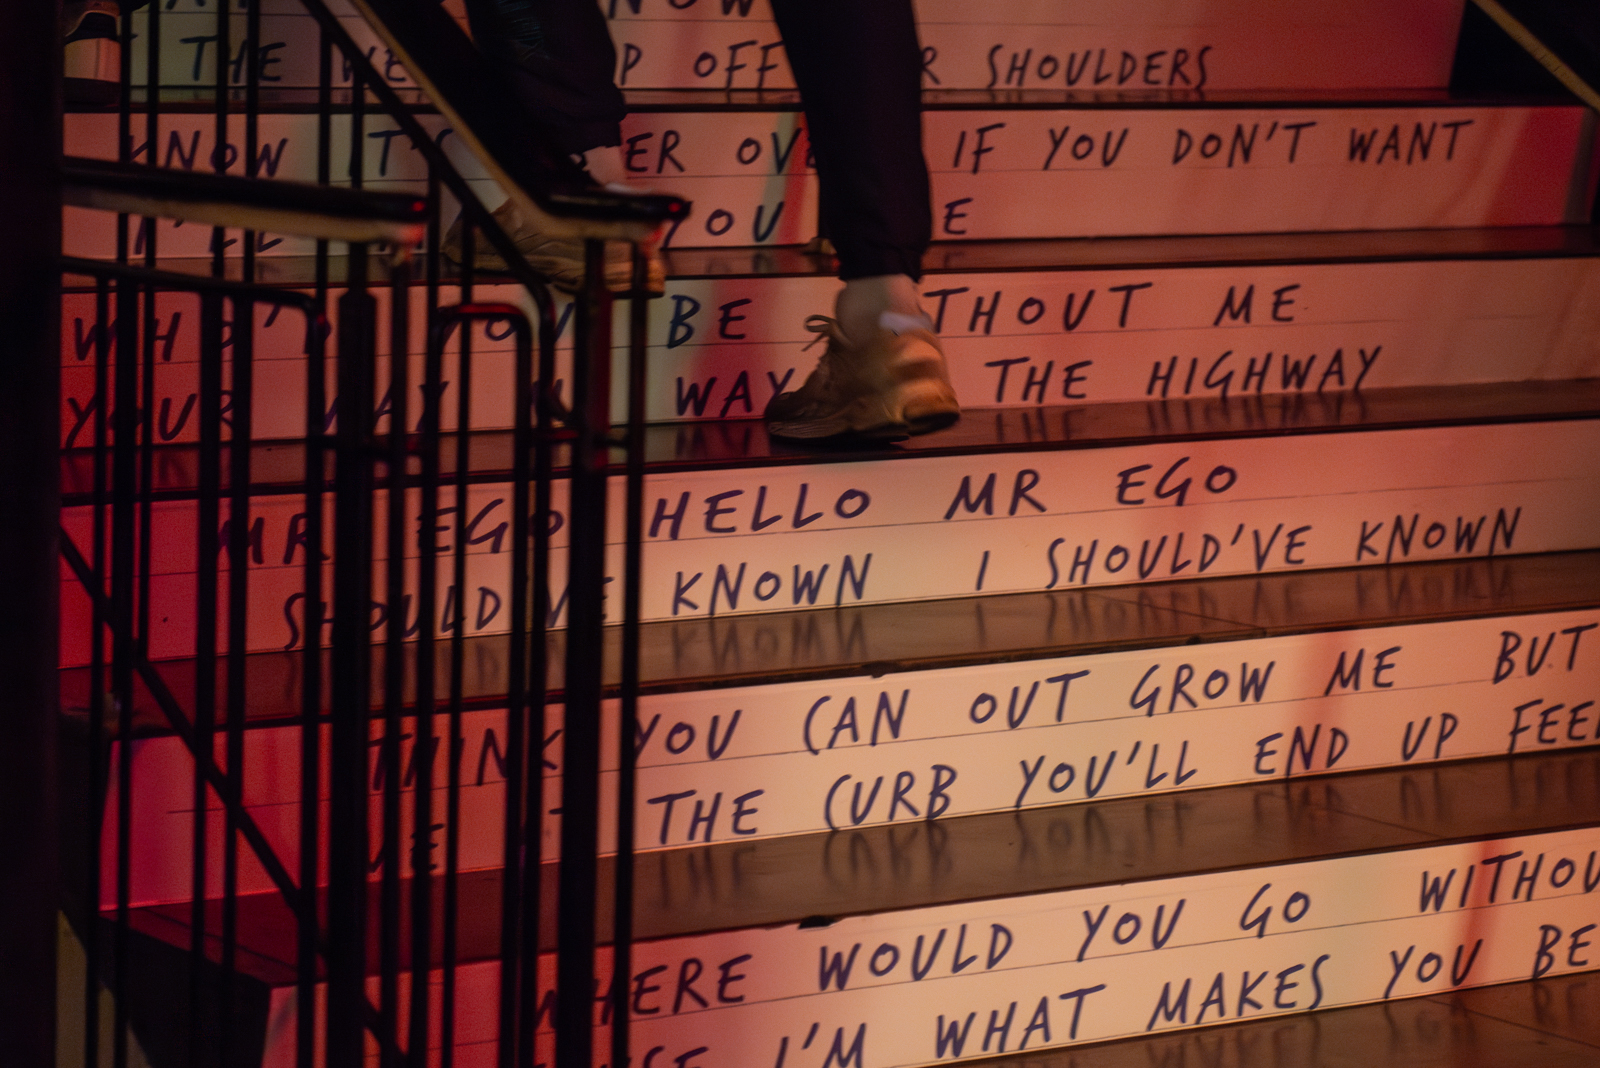 THE OFF SHOULDERS
KNOW IT'S OVER IF YOU DON'T WANT
I'LL YOU
WHO'D YOU BE WITHOUT ME
YOUR WAY WAY THE HIGHWAY
MR EGO HELLO MR EGO
SHOULD'VE KNOWN I SHOULD'VE KNOWN
THINK YOU CAN OUT GROW ME BUT
THE CURB YOU'LL END UP
WHERE WOULD YOU GO
I'M WHAT MAKES YOU BE